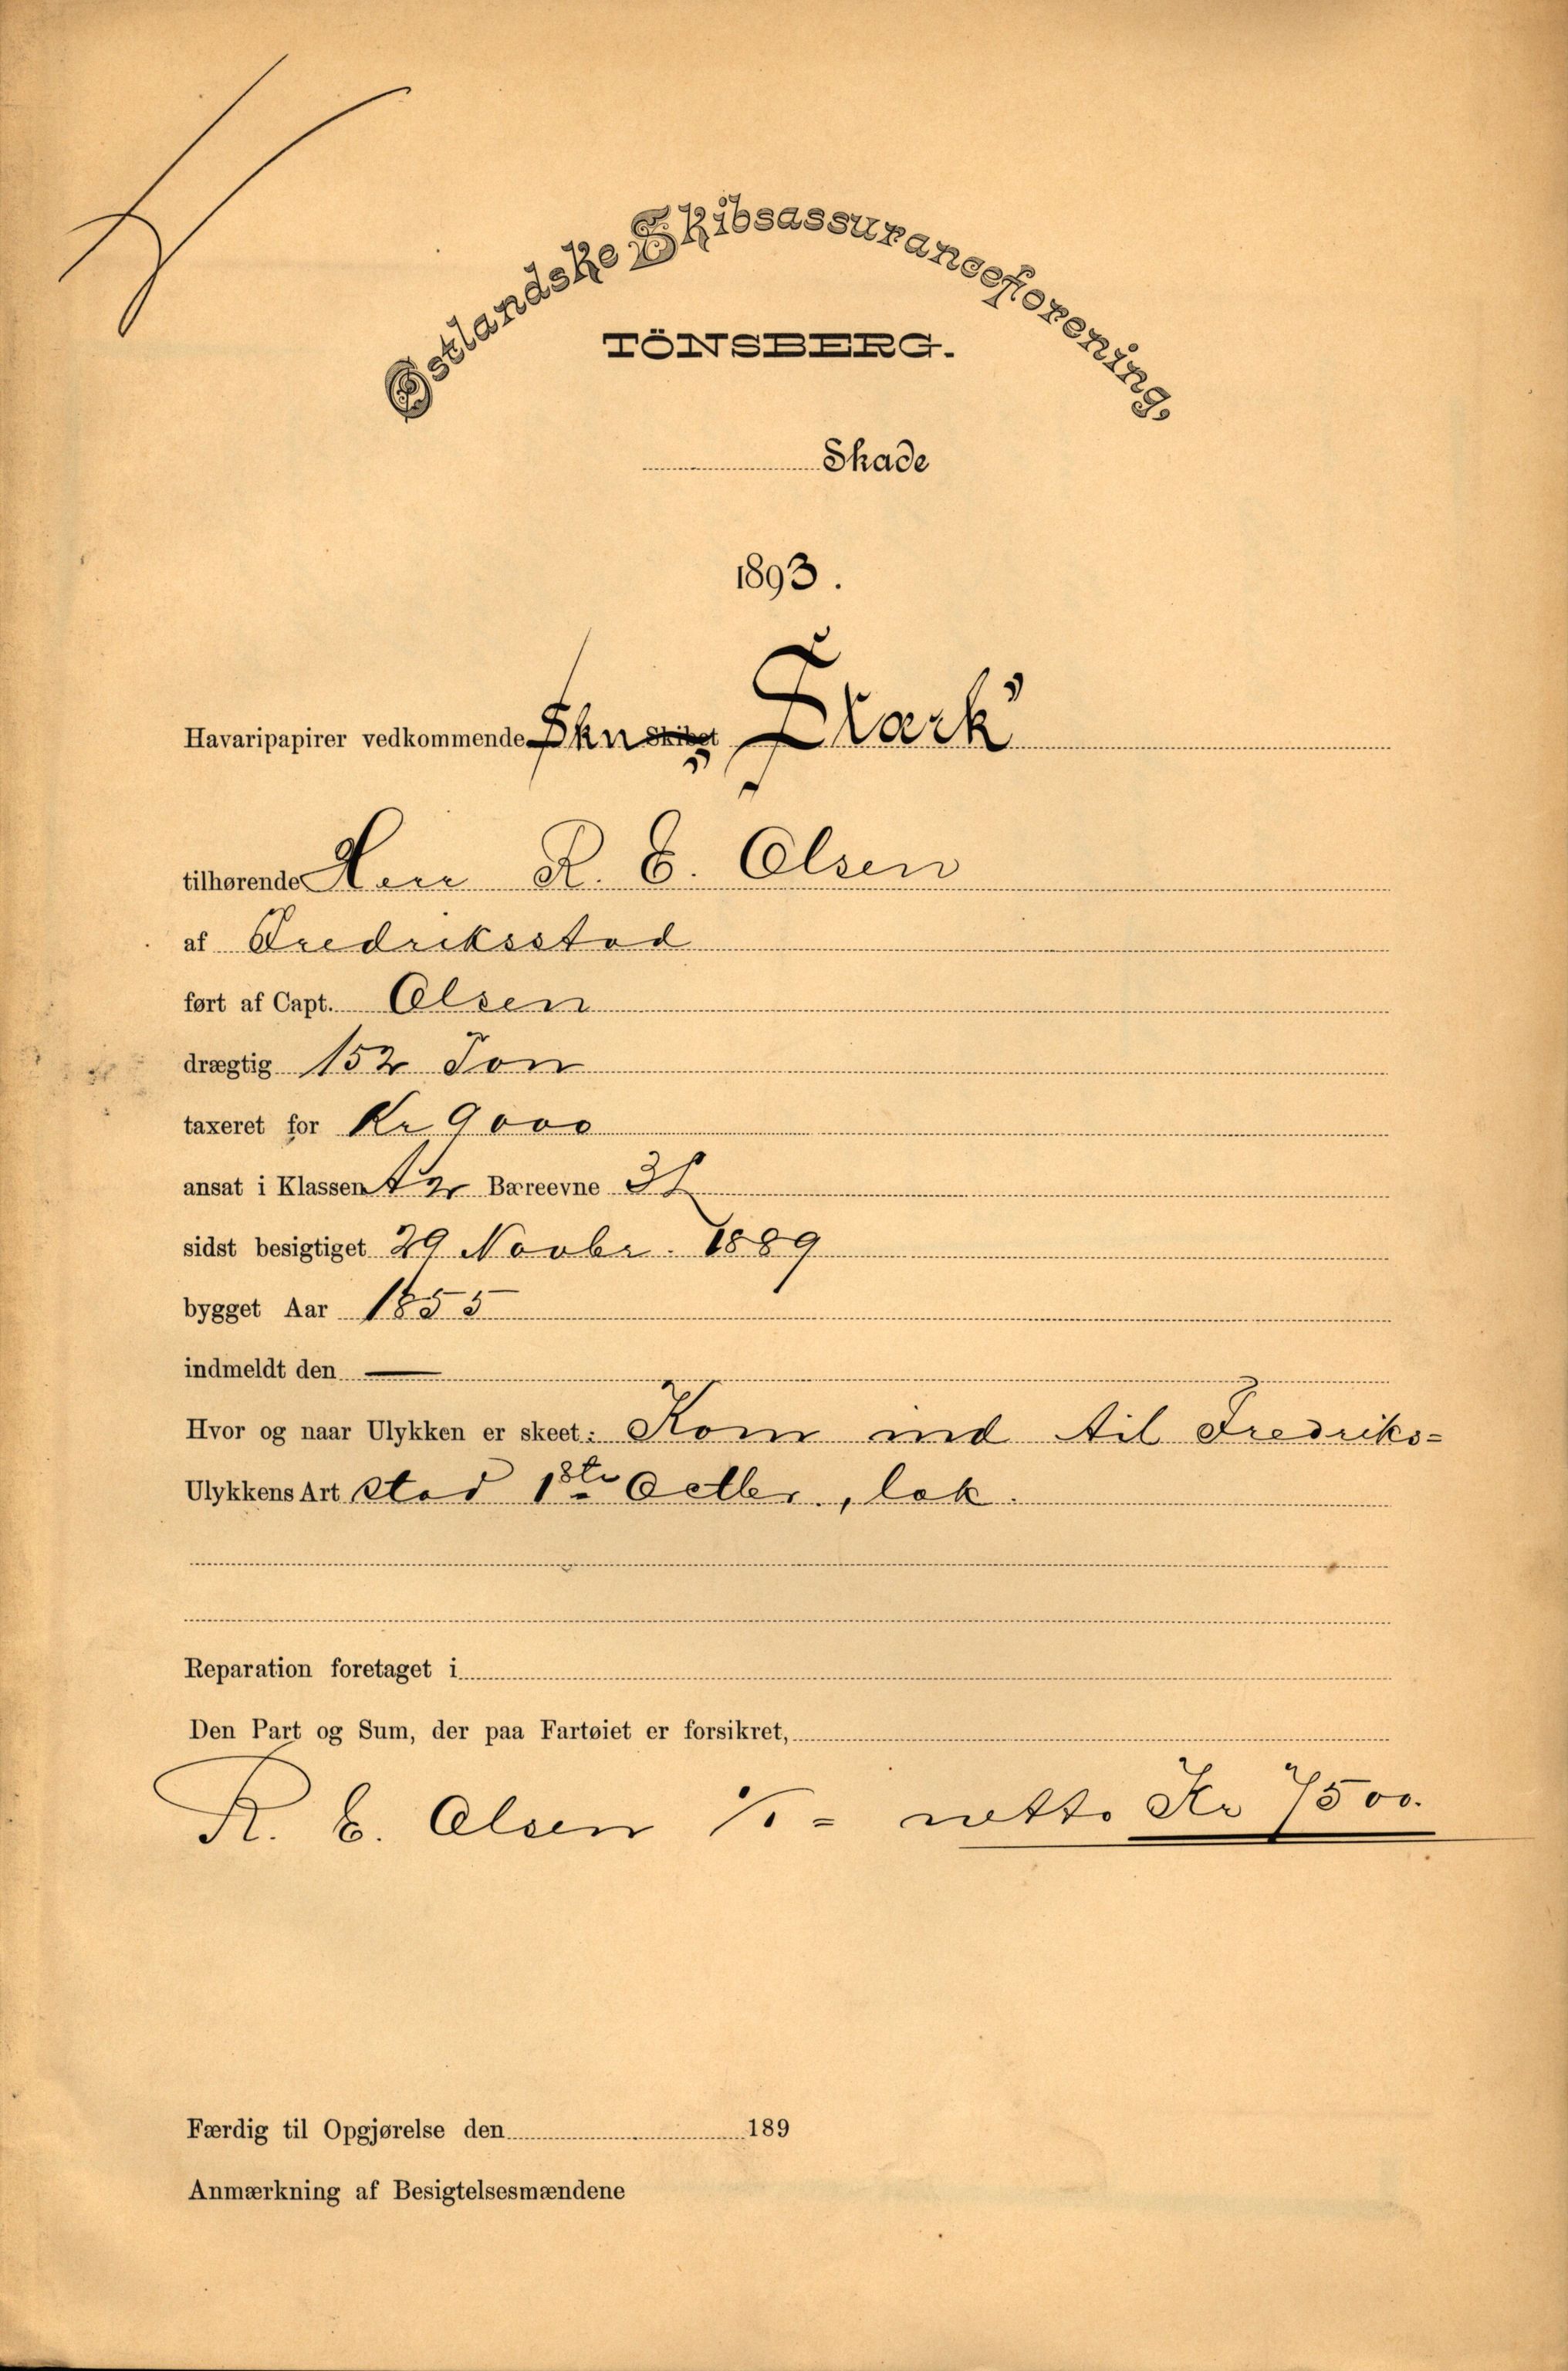 Østlandske Skibsassuranceforening,
TÖNSBERG.
Skade
1893.
Havaripapirer vedkommende Skn Skibet „Stærk"
tilhørende Herr R. E. Olsen
af Fredriksstad
ført af Capt. Olsen
drægtig 152 Ton
taxeret for Kr 9000
ansat i Klassen Bæreevne
sidst besigtiget 29 Novbr. 1889
bygget Aar 1855
indmeldt den —
Hvor og naar Ulykken er skeet: Kom ind til Fredriks=
Ulykkens Art stad 1ste Octbr., læk.
Reparation foretaget i
Den Part og Sum, der paa Fartøiet er forsikret,
R. E. Olsen 1/1 = netto Kr 7500.
Færdig til Opgjørelse den 189
Anmærkning af Besigtelsesmændene